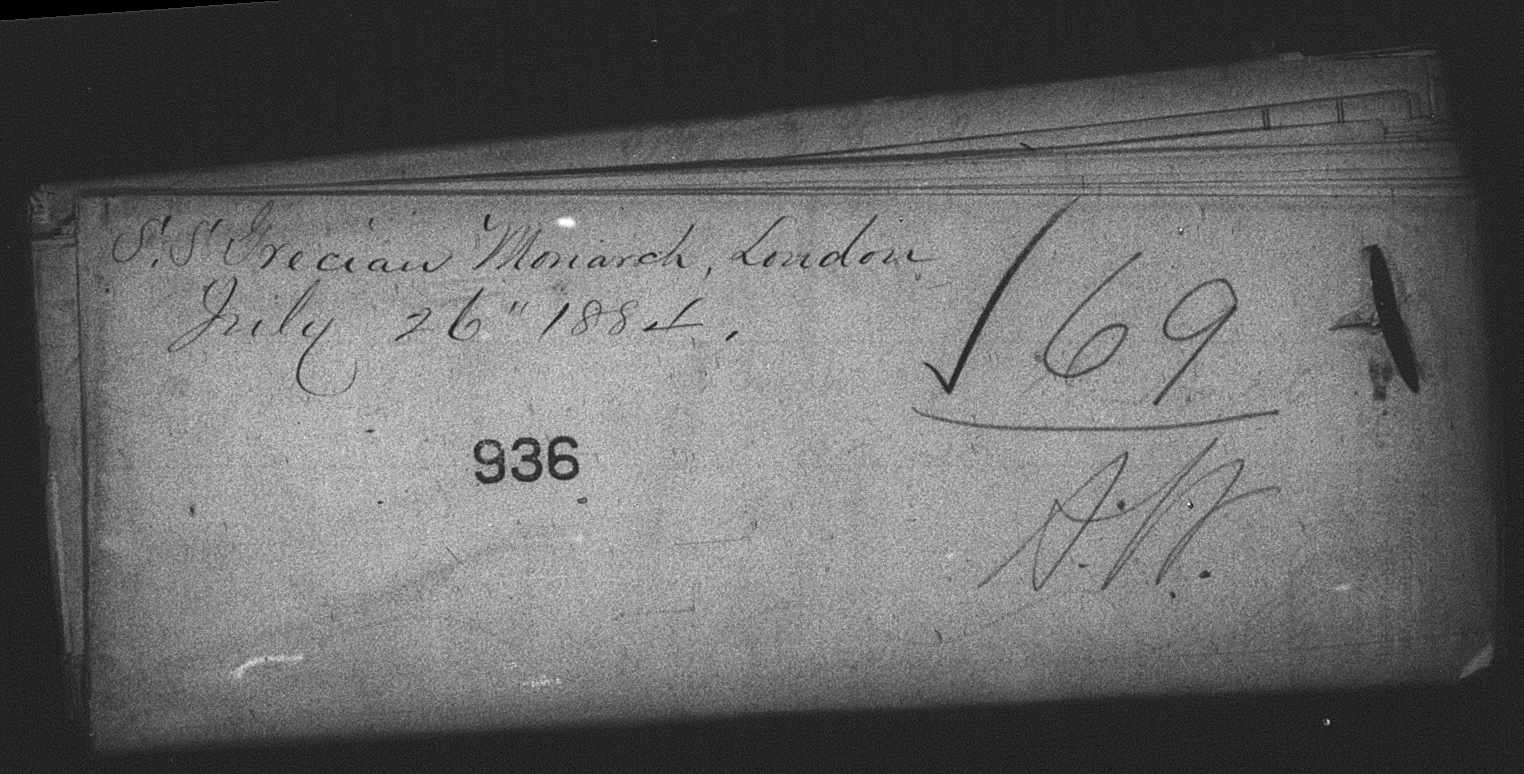 S. S. Grecian Monarch, London
July 26" 1884.
√ 69
936